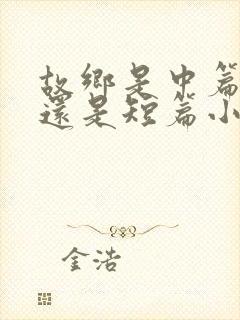 故鄉是中篇
還是短篇小
金浩